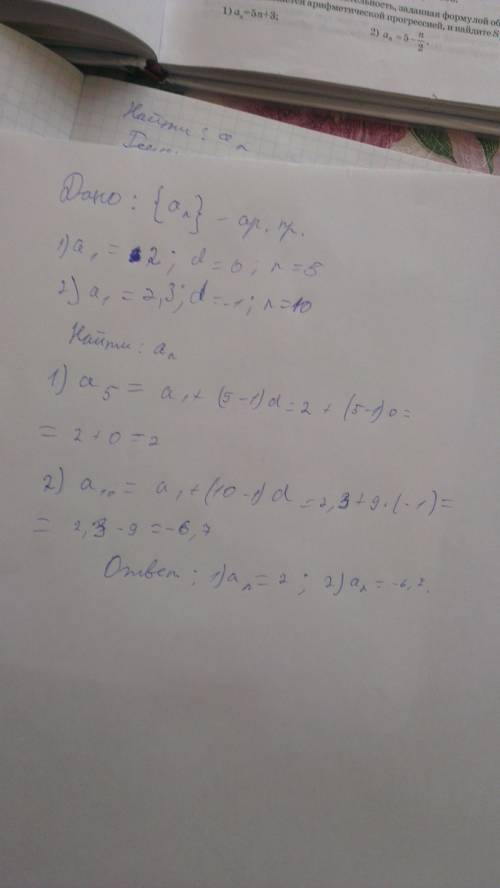 тельность, заданная формулой об
ается арифметической прогрессией, и найдите S
1) aₙ=5n+3;
2) aₙ=5−n/2.
Найти: aₙ
Дано: {aₙ} – ар. пр.
1) a₁ = 2; d = 0; n = 5
2) a₁ = 2,3; d = -1; n = 10
Найти: aₙ
1) a₅ = a₁ + (5-1)d = 2 + (5-1)0 =
= 2 + 0 = 2
2) a₁₀ = a₁ + (10-1)d = 2,3 + 9·(-1) =
= 2,3 - 9 = -6,7
Ответ: 1) aₙ = 2; 2) aₙ = -6,7.